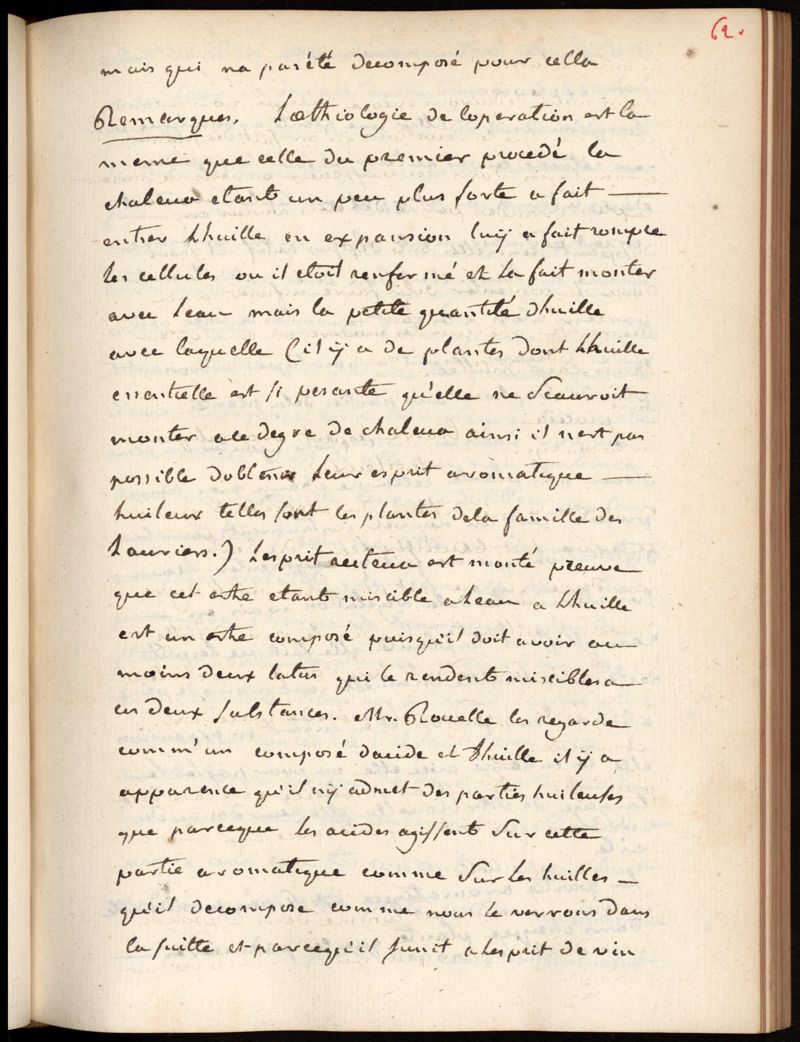 62.
mais qui na pas été decomposé pour cella
Remarques. Lœthiologie de loperation est la
meme que celle du premier procedé la
chaleur etant un peu plus forte a fait —
entrer Lhuille en expansion luy a fait rompre
les cellules ou il etoit renfermé et La fait monter
avec Leau mais la petite quantité dhuille
avec laquelle (il y a de plantes dont Lhuille
essentielle est si pesante qu'elle ne Scauroit
monter a ce degre de chaleur ainsi il nest pas
possible dobtenir Leur esprit aromatique —
huileux telles sont les plantes dela famille des
Lauriers.) Lesprit recteur est monté preuve
que cet estre etant miscible a Leau a Lhuille
est un estre composé puisqu'il doit avoir au
moins deux latus qui le rendent miscibles a
ces deux substances. Mr. Rouelle les regarde
comm'un composé dacide et dhuille il y a
apparence qu'il ny admet des parties huileuses
que parceque Les acides agissent Sur cette
partie aromatique comme Sur Les huilles —
qu'il decompose comme nous le verrons dans
la suitte et parcequ'il sunit a Lesprit de vin